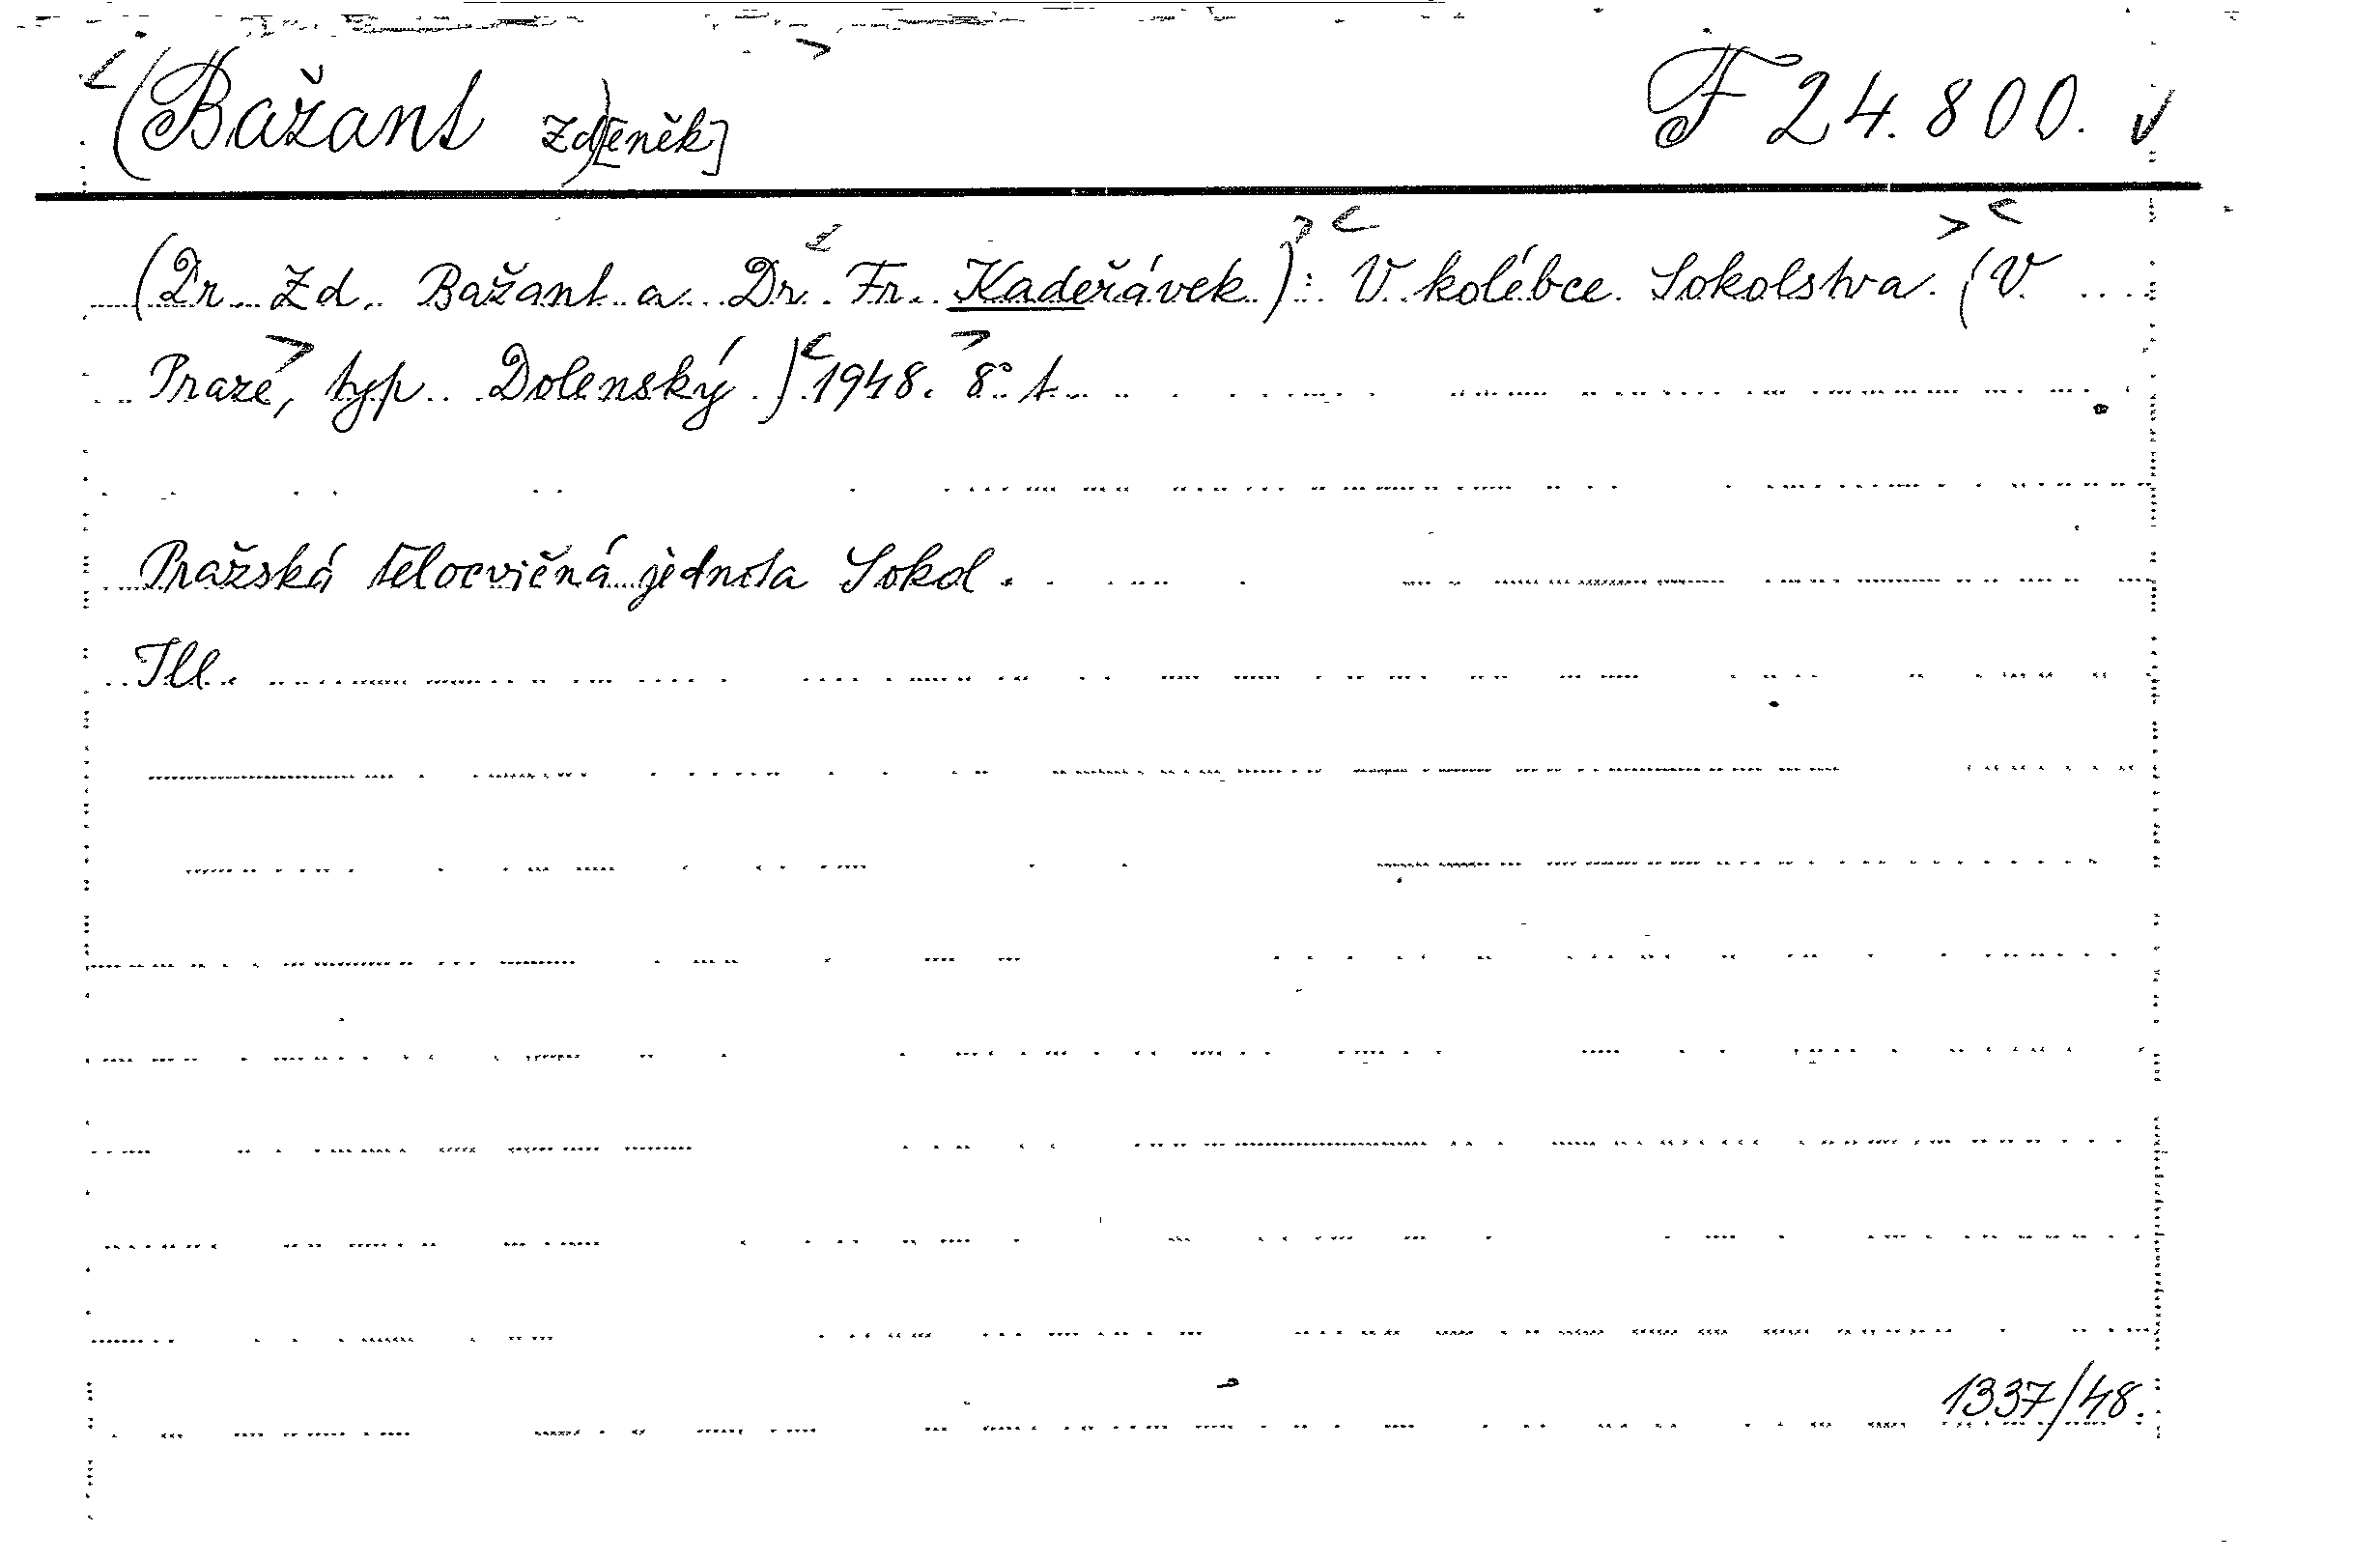 (Bažant Zd)[eněk] F 24.800.
(Dr Zd. Bažant a Dr. Fr. Kadeřávek): V kolébce Sokolstva. (V
Praze, typ. Dolenský.) 1948. 8° t.
Pražská tělocvičná jednota Sokol.
Ill.
1337/48.